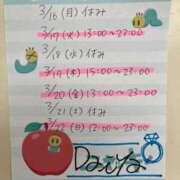 3/16 (月) 休み
3/17 (火) 13:00~22:00
3/18 (水) 休み
3/19 (木) 15:00~23:00
3/20 (金) 13:00~23:00
3/21 (土) 休み
3/22 (日) 12:00~23:00